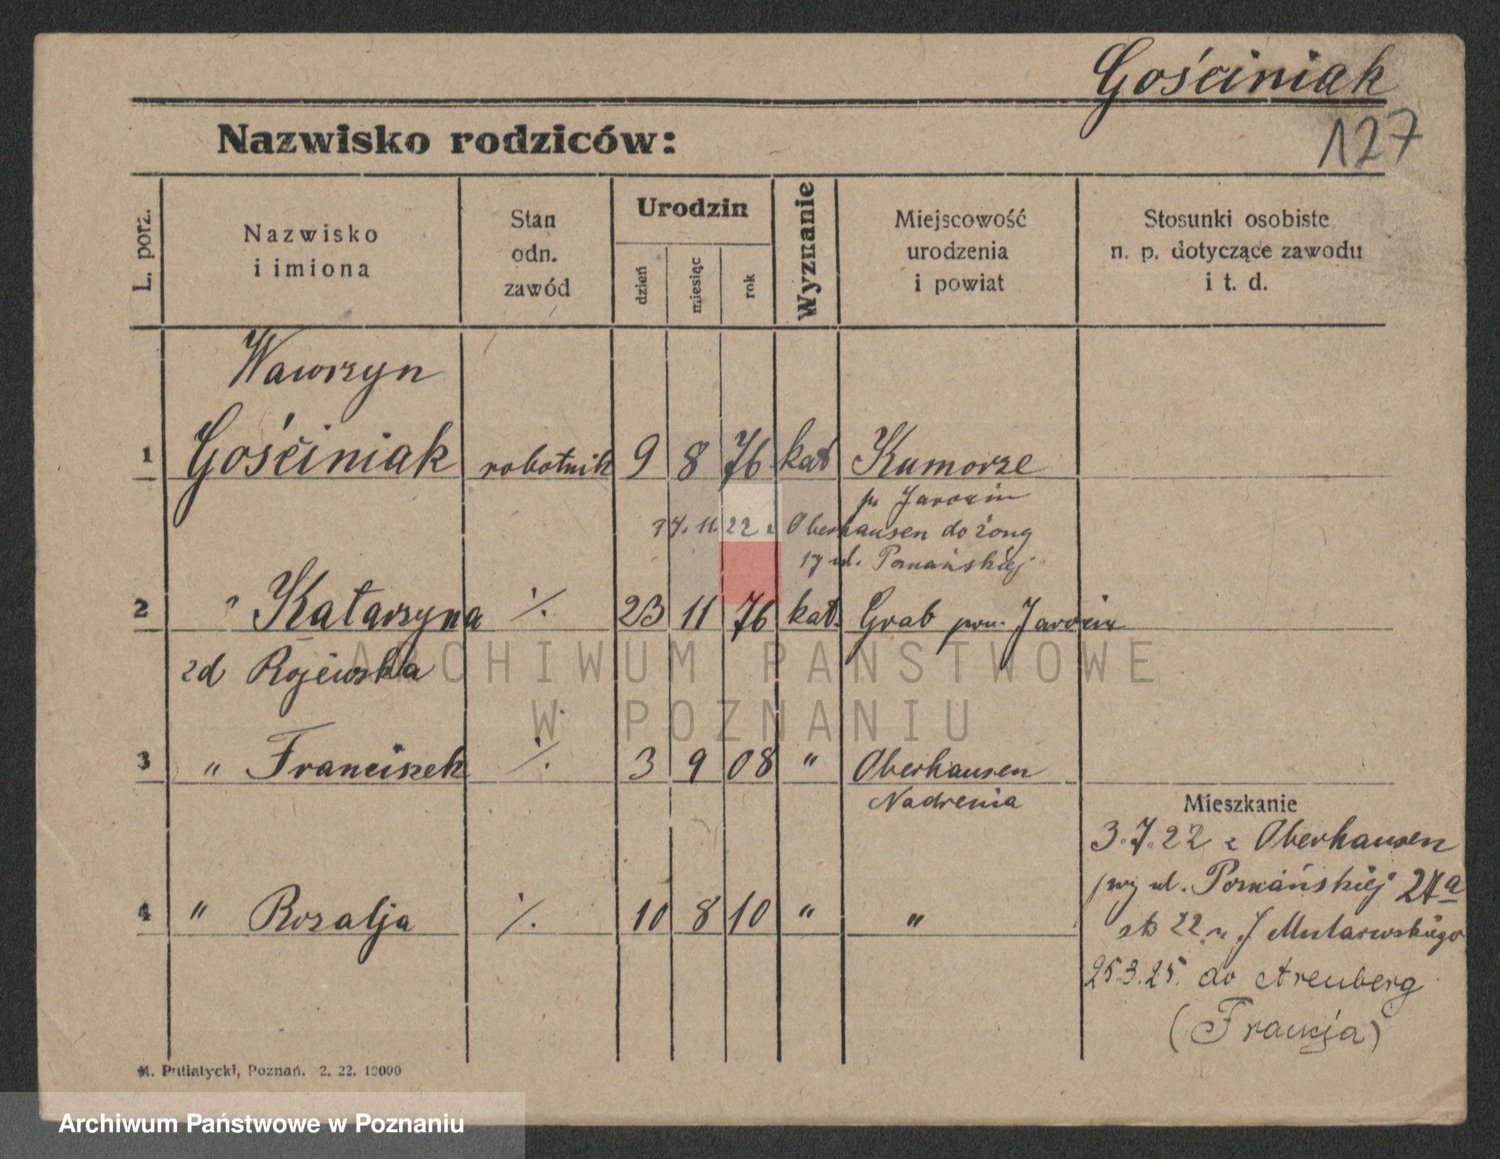 Gościniak
127
Nazwisko rodziców:
L. porz.
Nazwisko
i imiona
Stan
odn.
zawód
Urodzin
dzień
miesiąc
rok
Wyznanie
Miejscowość
urodzenia
i powiat
Stosunki osobiste
n. p. dotyczące zawodu
i t. d.
Wawrzyn
1 Gościniak robotnik 9 8 76 kat Kumorze
p. Jarocin
14.11.22 z Oberhausen do żony
ul. Poznańskiej
2 " Katarzyna %. 23 11 76 kat. Grab pow. Jarocin
zd Rojewska
3 " Franciszek %. 3 9 08 " Oberhausen
Nadrenia
Mieszkanie
3.7.22 z Oberhausen
przy ul. Poznańskiej 24a
4 " Rozalja %. 10 8 10 " "
22 u J Mularewskiego
25.3.25. do Arenberg
(Francja)
M. Putiatycki, Poznań. 2. 22. 10000
ARCHIWUM PAŃSTWOWE
W POZNANIU
Archiwum Państwowe w Poznaniu